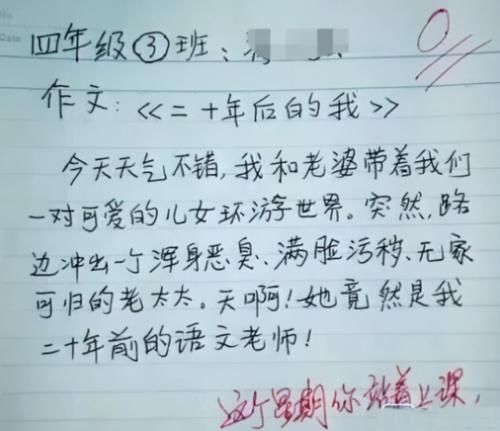 四年级③班：
0
作文：<<二十年后的我>>
今天天气不错，我和老婆带着我们
一对可爱的儿女环游世界。突然，路
边冲出一个浑身恶臭、满脸污秽、无家
可归的老太太。天啊！她竟然是我
二十年前的语文老师！
这个星期你站着上课，